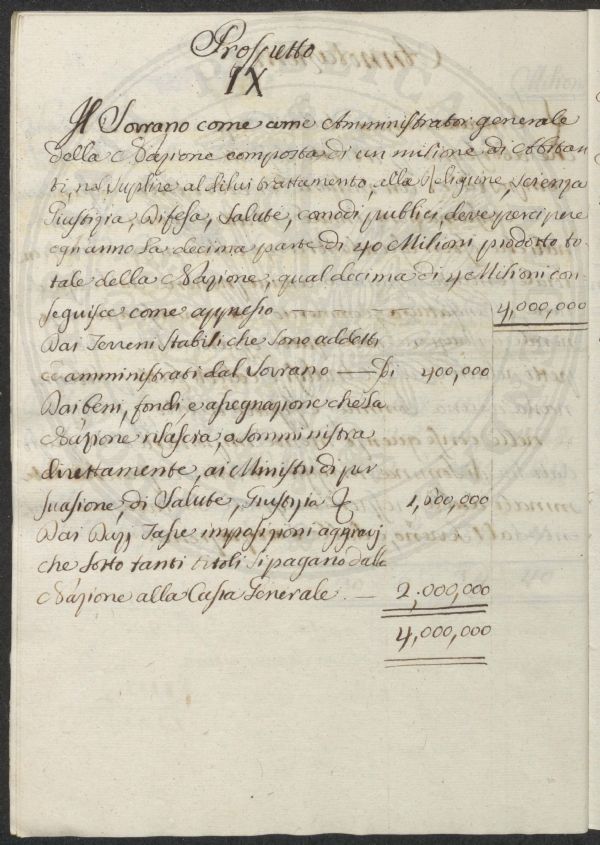 Prospetto
IX
Il Sovrano come come Amministrator generale
della Nazione composta di un milione di Abitan
ti, nel suplire al di lui trattamento, alla Religione, scienza
Giustizia, Difesa, Salute, comodi publici, deve percipere
ogn anno la decima parte di 40 Milioni prodotto to-
tale della Nazione, qual decima di 4 Milioni con-
seguisce come appresso 4,000,000
Dai Terreni stabili che sono addetti
ed amministrati dal Sovrano — Di 400,000
Dai beni, fondi e assegnazione che la
Nazione rilascia, o somministra
direttamente, ai Ministri di per
suasione, di Salute, Giustizia 1,600,000
Dai Dazj Tasse imposizioni aggravj
che sotto tanti titoli si pagano dalla
Nazione alla Cassa Generale. — 2.000,000
4,000,000